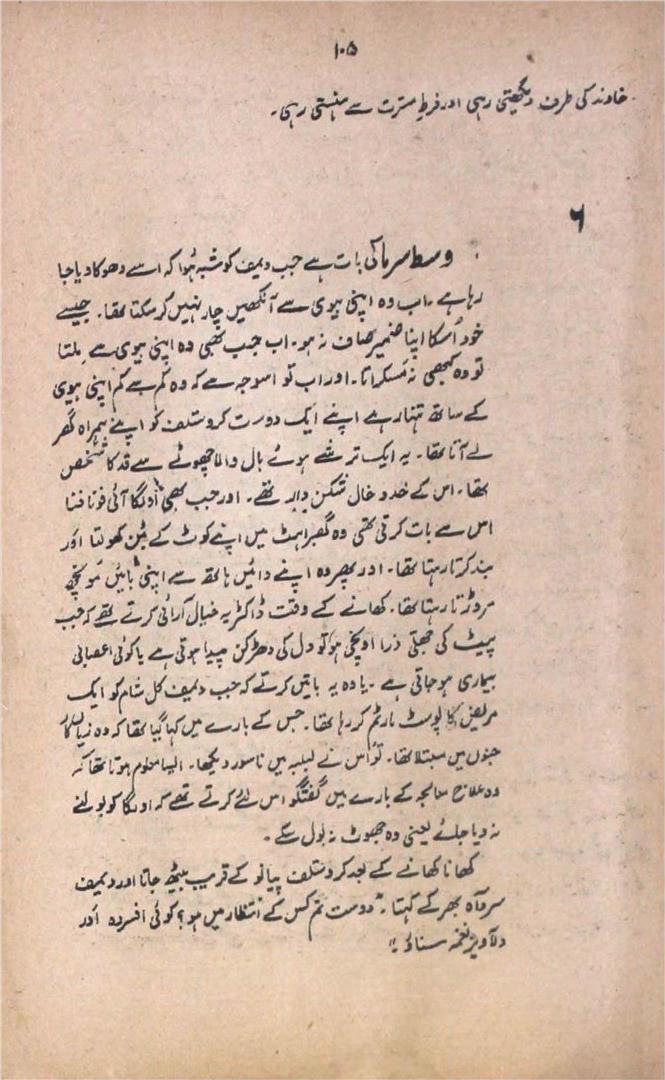 ۱۰۵
خاوند کی طرف دیکھتی رہی اور فرطِ مسرت سے ہنستی رہی۔
۶
وسط سرما کی بات ہے جب دیمف کو شبہ ہُوا کہ اسے دھوکا دیا جا
رہا ہے۔ اب وہ اپنی بیوی سے آنکھیں چار نہیں کر سکتا تھا۔ جیسے
خود اُسکا اپنا ضمیر صاف نہ ہو۔ اب جب کبھی وہ اپنی بیوی سے ملتا
تو وہ کبھی نہ مُسکراتا۔ اور اب تو اسوجہ سے کہ وہ کم سے کم اپنی بیوی
کے ساتھ تنہا رہے اپنے ایک دوست کروستلف کو اپنے ہمراہ گھر
لے آتا تھا۔ یہ ایک ترشے ہوئے بال والا چھوٹے سے قد کا شخص
تھا۔ اس کے خدوخال شکن دار تھے۔ اور جب کبھی اولگا آئی فونا فنا
اس سے بات کرتی تھی وہ گھبراہٹ میں اپنے کوٹ کے بٹن کھولتا اور
بند کرتا رہتا تھا۔ اور پھر وہ اپنے دائیں ہاتھ سے اپنی بائیں مونچھ
مروڑتا رہتا تھا۔ کھانے کے وقت ڈاکٹر یہ خیال آرائی کرتے تھے کہ جب
پیٹ کی جھلی ذرا اونچی ہو تو دل کی دھڑکن پیدا ہوتی ہے یا کوئی اعصابی
بیماری ہو جاتی ہے۔ یا وہ یہ باتیں کرتے کہ جب دیمف کل شام کو ایک
مریض کا پوسٹ مارٹم کر رہا تھا۔ جس کے بارے میں کہا گیا تھا کہ وہ زیاں کار
جنوں میں مبتلا تھا۔ تو اُس نے لبلبہ میں ناسور دیکھا۔ ایسا معلوم ہوتا تھا کہ
وہ علاج معالجہ کے بارے میں گفتگو اس لئے کرتے تھے کہ اولگا کو بولنے
نہ دیا جائے یعنی وہ جھوٹ نہ بول سکے۔
کھانا کھانے کے بعد کروستلف پیانو کے قریب بیٹھ جاتا اور دیمف
سرد آہ بھر کے کہتا۔ "دوست تم کس کے انتظار میں ہو؟ کوئی افسردہ اور
دلآویز نغمہ سناؤ۔"